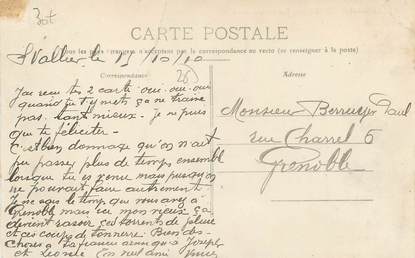 30t
CARTE POSTALE
Tous les pays étrangers n'acceptent pas la correspondance au recto (se renseigner à la poste)
St Vallier le 15/10/10
Correspondance
26
Adresse
J'ai reçu tes 2 carte oui-oui-oui
quand tu t'y mets ça ne traine
pas. tant mieux. je ne puis
que te féliciter -
C'est bien dommage qu'on n'ait
pu passer plus de temps ensemble
lorsque tu es venu mais puisqu'on
ne pouvait faire autrement.
Je ne sais le temps que vous avez à
Grenoble mais ici mon vieux ça
devient rasoir ces torrents de pluie
et ces coups de tonnerre. Bien des
choses à ta fiancée ainsi qu'à Joseph
et Ton ami
Monsieur Paul
rue Charrel 6
Grenoble